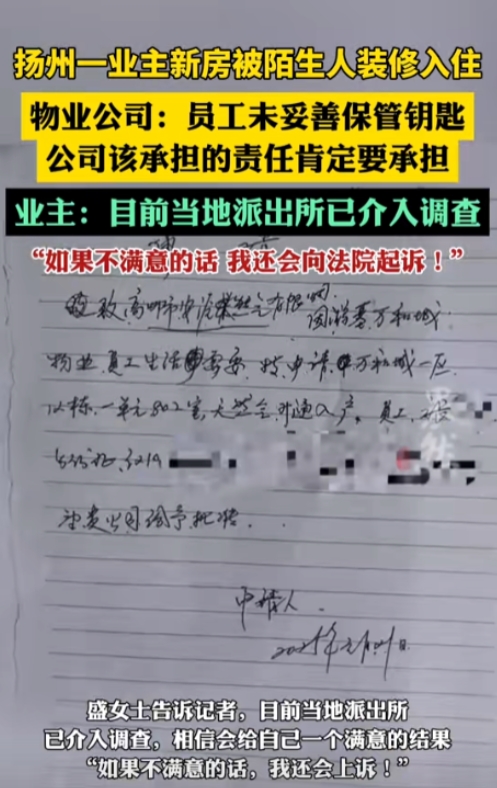 扬州一业主新房被陌生人装修入住
物业公司：员工未妥善保管钥匙
公司该承担的责任肯定要承担
业主：目前当地派出所已介入调查
“如果不满意的话 我还会向法院起诉！”
申请
万和城
物业员工生活需要 特申请 万和城一区
12栋一单元802室天然气开通入户。员工
贵公司给予批准．
申请人．
盛女士告诉记者，目前当地派出所
已介入调查，相信会给自己一个满意的结果
“如果不满意的话，我还会上诉！”